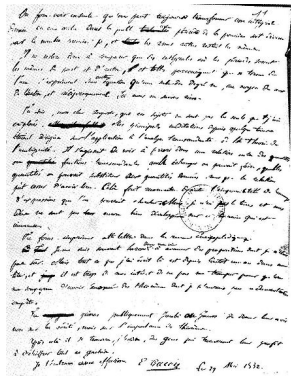 On fera voir ensuite qu'on peut toujours transformer une intégrale
donnée en une autre dans laquelle une période de la première soit divisée
par le nombre premier p, et les autres restent les mêmes.
Il ne restera donc à comparer que des intégrales où les périodes seront
les mêmes de part et d'autre, et telles, par conséquent que n termes de
l'une s'expriment qu'une seule du degré n, au moyen de ceux
de l'autre, et réciproquement. nous ne savons rien.
Tu sais, mon cher Auguste, que ces sujets ne sont pas les seuls que j'aie
explorés. Mes principales méditations depuis quelque temps
étaient dirigées sur l'application à l'analyse transcendante de la théorie de
l'ambiguité. Il s'agissait de voir a priori dans une relation entre des quantités
ou fonctions transcendantes quels échanges on pouvait faire, quelles
quantités on pouvait substituer aux quantités données sans que la relation
put cesser d'avoir lieu. Cela fait reconnaitre l'impossibilité de beaucoup
d'expressions que l'on pourrait chercher. Mais je n'ai pas le temps et mes
idées ne sont pas encore bien développées sur ce terrain qui est
immense.
Tu feras imprimer cette lettre dans la revue encyclopédique.
Je me suis souvent hasardé dans ma vie à avancer des propositions dont je n'étais
pas sûr. Mais tout ce que j'ai écrit là est depuis bientôt un an dans ma
tête, et il est trop de mon intérêt de ne pas me tromper pour qu'on
me soupçonne d'avoir énoncé des théorèmes dont je n'aurais pas la démonstration
complète.
Tu prieras publiquement Jacobi ou Gauss de donner leur avis
non sur la vérité, mais sur l'importance des théorèmes.
Après cela il se trouvera, j'espère, des gens qui trouveront leur profit
à déchiffrer tout ce gachis.
Je t'embrasse avec effusion. E. Galois Le 29 Mai 1832.